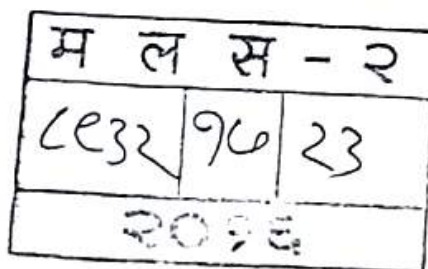 म ल स - २
८९३२ १७ २३
२०१६